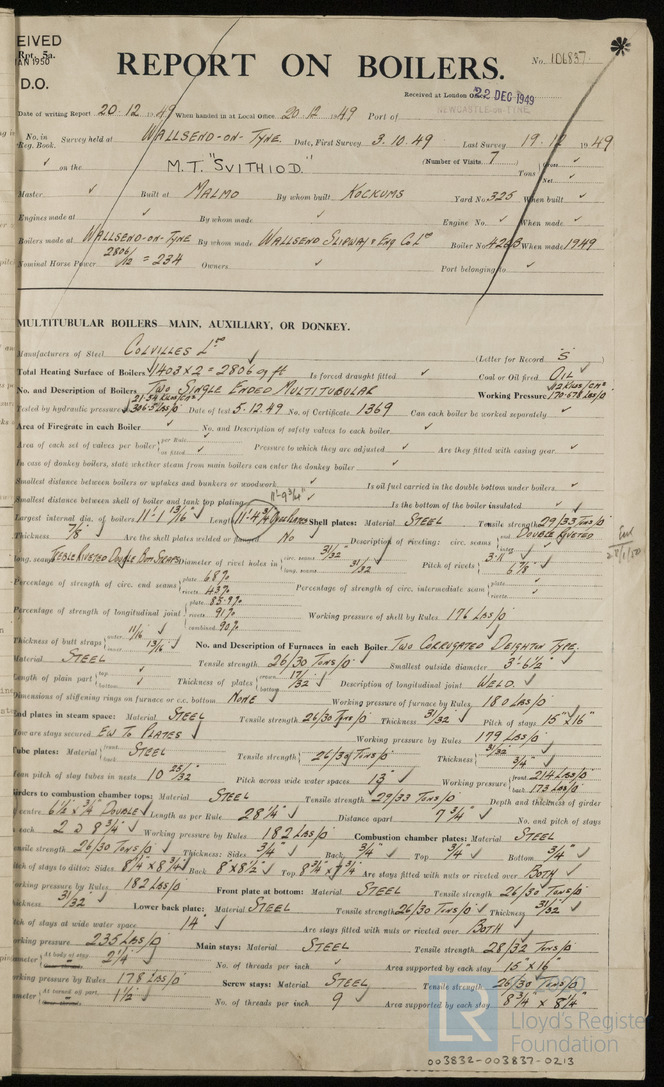 EIVED
Rpt. 5a.
AN 1950
D.O.
REPORT ON BOILERS.
No. 101837
Received at London Office 22 DEC 1949
NEWCASTLE-ON-TYNE
Date of writing Report 20.12.1949 When handed in at Local Office 20.12.1949 Port of
No. in Reg. Book. Survey held at WALLSEND-ON-TYNE Date, First Survey 3.10.49 Last Survey 19.12.1949
on the M.T. "SVITHIOD" (Number of Visits 7) Tons Gross Net
Master Built at MALMO By whom built KOCKUMS Yard No. 325 When built
Engines made at By whom made Engine No. When made
Boilers made at WALLSEND-ON-TYNE By whom made WALLSEND SLIPWAY & ENG Co Ld Boiler No. When made 1949
Nominal Horse Power 2806/12 = 234 Owners Port belonging to
MULTITUBULAR BOILERS MAIN, AUXILIARY, OR DONKEY.
Manufacturers of Steel COLVILLES Ld (Letter for Record S)
Total Heating Surface of Boilers 1403 x 2 = 2806 sq ft Is forced draught fitted Coal or Oil fired OIL
No. and Description of Boilers TWO SINGLE ENDED MULTITUBULAR Working Pressure 12 KILOS/CM² 170.678 LBS/□
Tested by hydraulic pressure to 21.54 KILOS/CM² 306.5 LBS/□ Date of test 5.12.49 No. of Certificate 1369 Can each boiler be worked separately
Area of Firegrate in each Boiler No. and Description of safety valves to each boiler
Area of each set of valves per boiler per Rule as fitted Pressure to which they are adjusted Are they fitted with easing gear
In case of donkey boilers, state whether steam from main boilers can enter the donkey boiler
Smallest distance between boilers or uptakes and bunkers or woodwork Is oil fuel carried in the double bottom under boilers
Smallest distance between shell of boiler and tank top plating Is the bottom of the boiler insulated
11'-9 3/4"
Largest internal dia. of boilers 11'-1 13/16" Length 11'-4 3/4" Shell plates: Material STEEL Tensile strength 29/33 TONS/□
Thickness 7/8 Are the shell plates welded or flanged NO Description of riveting: circ. seams end DOUBLE RIVETED
long. seams TREBLE RIVETED DOUBLE BUTT STRAPS Diameter of rivet holes in circ. seams 31/32" long. seams 31/32 Pitch of rivets 6 7/8"
Percentage of strength of circ. end seams plate 68% rivets 43% Percentage of strength of circ. intermediate seam plate rivets
Percentage of strength of longitudinal joint plate 85.9% rivets 91% combined 90% Working pressure of shell by Rules 176 LBS/□
Thickness of butt straps outer 11/16 inner 13/16 No. and Description of Furnaces in each Boiler TWO CORRUGATED DEIGHTON TYPE.
Material STEEL Tensile strength 26/30 TONS/□ Smallest outside diameter 3'-6 1/2"
Length of plain part top bottom Thickness of plates crown bottom 17/32 Description of longitudinal joint WELD.
Dimensions of stiffening rings on furnace or c.c. bottom NONE Working pressure of furnace by Rules 180 LBS/□
End plates in steam space: Material STEEL Tensile strength 26/30 TONS/□ Thickness 31/32 Pitch of stays 15" x 16"
How are stays secured Working pressure by Rules 179 LBS/□
Tube plates: Material front back STEEL Tensile strength 26/30 TONS/□ Thickness 31/32 3/4"
Mean pitch of stay tubes in nests 10 25/32 Pitch across wide water spaces 13" Working pressure front 214 LBS/□ back 173 LBS/□
Girders to combustion chamber tops: Material STEEL Tensile strength 29/33 TONS/□ Depth and thickness of girder
at centre 6 1/2" x 3/4" DOUBLE Length as per Rule 28 1/4" Distance apart 7 3/4" No. and pitch of stays
in each 2 @ 8 3/4" Working pressure by Rules 182 LBS/□ Combustion chamber plates: Material STEEL
Tensile strength 26/30 TONS/□ Thickness: Sides 3/4" Back 3/4" Top 3/4" Bottom 3/4"
Pitch of stays to ditto: Sides 8 1/4" x 8 3/4" Back 8" x 8 1/2" Top 8 3/4" x 7 3/4" Are stays fitted with nuts or riveted over BOTH
Working pressure by Rules 182 LBS/□ Front plate at bottom: Material STEEL Tensile strength 26/30 TONS/□
Thickness 31/32 Lower back plate: Material STEEL Tensile strength 26/30 TONS/□ Thickness 31/32
Pitch of stays at wide water space 14" Are stays fitted with nuts or riveted over BOTH
Working pressure 235 LBS/□ Main stays: Material STEEL Tensile strength 28/32 TONS/□
Diameter At body of stay 2 1/4 No. of threads per inch Area supported by each stay 15" x 16"
Working pressure by Rules 178 LBS/□ Screw stays: Material STEEL Tensile strength 26/30 TONS/□
Diameter At turned off part 1 1/2 No. of threads per inch 9 Area supported by each stay 8 3/4" x 8 1/4"
LR
Lloyd's Register
Foundation
003832-003837-0213